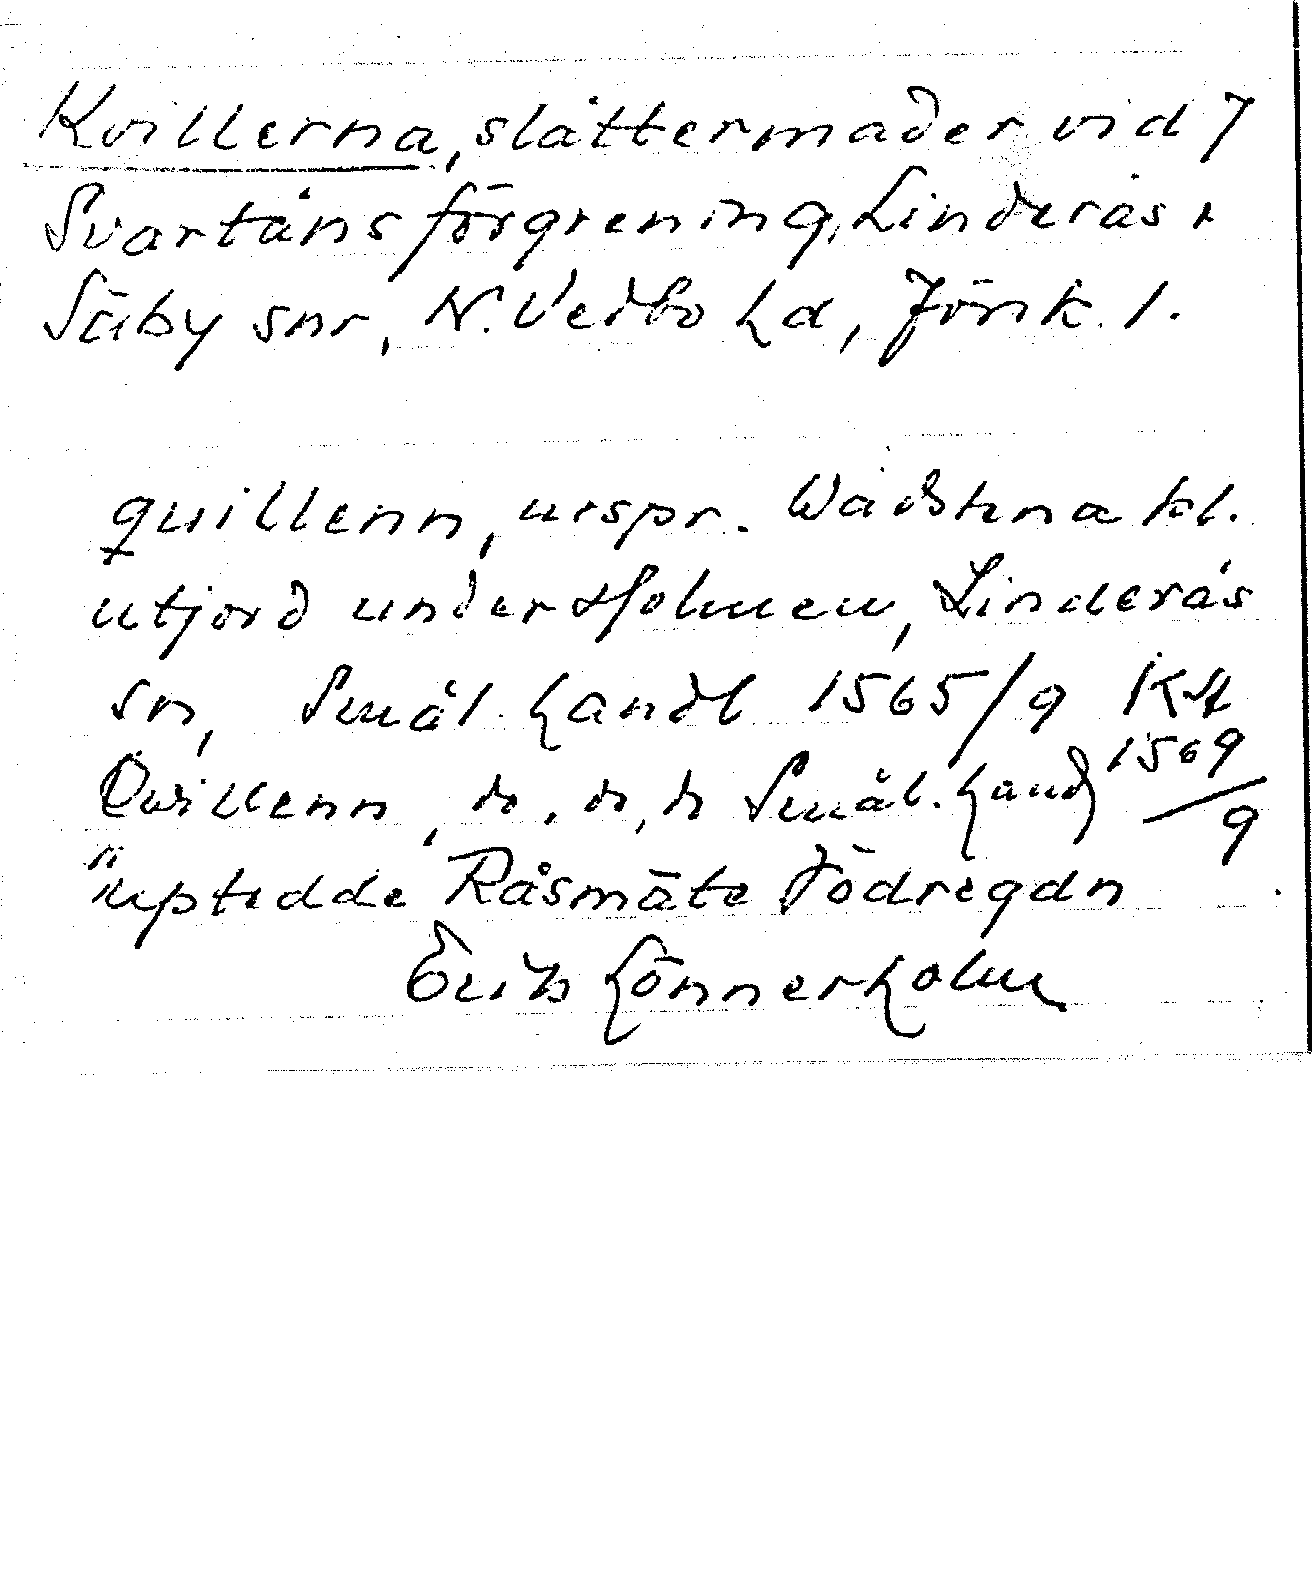 Kvillerna, slåttermader vid 7
Svartåns förgrening, Linderås
Säby snr, N. Vedbo hd, Jönk. l.
quillenn, urspr. Wadstena kl.
utjord under Holmen, Linderås
sn, Smål. handl 1565/9 KA
Qwillenn, do, do, do Smål. handl 1569/9
uptedde Råsmäte Jödregdn
Erik Lönnerholm